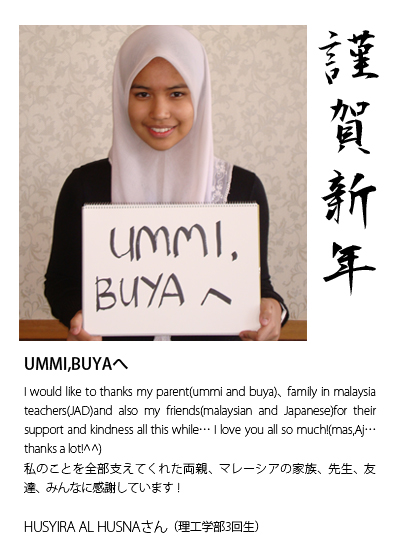 謹賀新年
UMMI,
BUYA へ
UMMI,BUYAへ
I would like to thanks my parent(ummi and buya)、family in malaysia
teachers(JAD)and also my friends(malaysian and Japanese)for their
support and kindness all this while… I love you all so much!(mas,Aj…
thanks a lot!^^)
私のことを全部支えてくれた両親、マレーシアの家族、先生、友
達、みんなに感謝しています！
HUSYIRA AL HUSNAさん（理工学部3回生）